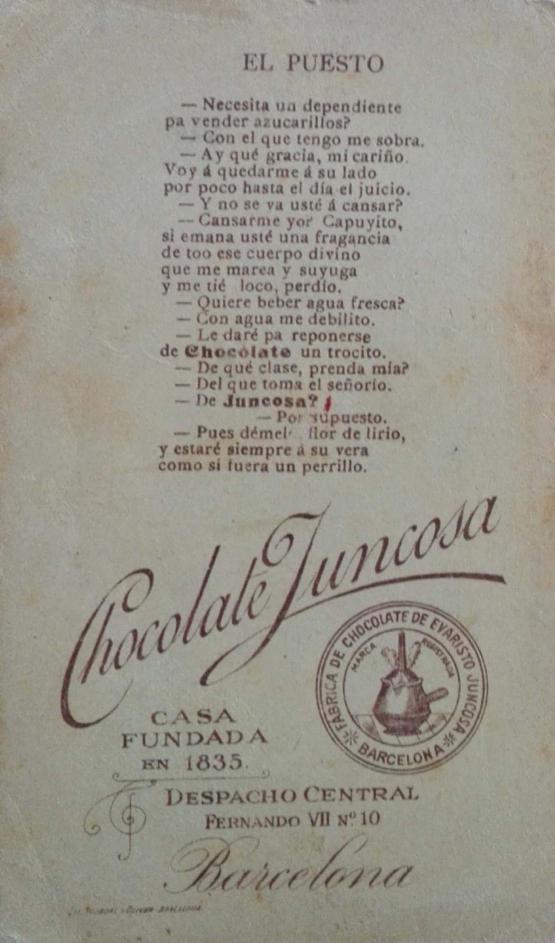 EL PUESTO
— Necesita un dependiente
pa vender azucarillos?
— Con el que tengo me sobra.
— Ay qué gracia, mi cariño.
Voy á quedarme á su lado
por poco hasta el día el juicio.
— Y no se va usté á cansar?
— Cansarme yo? Capuyito,
si emana usté una fragancia
de too ese cuerpo divino
que me marea y suyuga
y me tié loco, perdío.
— Quiere beber agua fresca?
— Con agua me debilito.
— Le daré pa reponerse
de Chocolate un trocito.
— De qué clase, prenda mía?
— Del que toma el señorio.
— De Juncosa?
— Por supuesto.
— Pues flor de lirio,
y estaré siempre á su vera
como si fuera un perrillo.
Chocolate Juncosa
FÁBRICA DE CHOCOLATE DE EVARISTO JUNCOSA
MARCA REGISTRADA
BARCELONA
CASA
FUNDADA
EN 1835.
DESPACHO CENTRAL
FERNANDO VII Nº 10
Barcelona